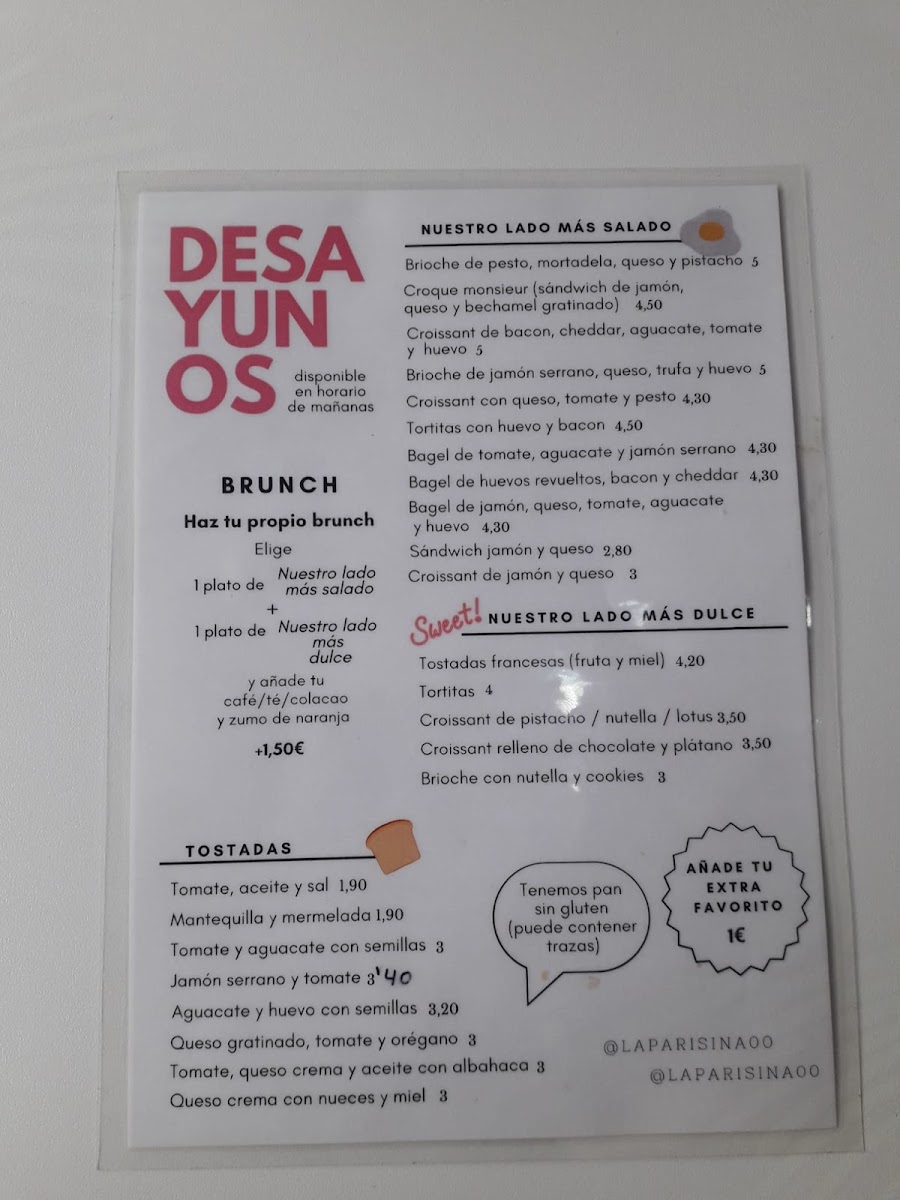 DESA
YUN
OS
disponible
en horario
de mañanas
BRUNCH
Haz tu propio brunch
Elige
1 plato de Nuestro lado
más salado
+
1 plato de Nuestro lado
más
dulce
y añade tu
café/té/colacao
y zumo de naranja
+1,50€
NUESTRO LADO MÁS SALADO
Brioche de pesto, mortadela, queso y pistacho 5
Croque monsieur (sándwich de jamón,
queso y bechamel gratinado) 4,50
Croissant de bacon, cheddar, aguacate, tomate
y huevo 5
Brioche de jamón serrano, queso, trufa y huevo 5
Croissant con queso, tomate y pesto 4,30
Tortitas con huevo y bacon 4,50
Bagel de tomate, aguacate y jamón serrano 4,30
Bagel de huevos revueltos, bacon y cheddar 4,30
Bagel de jamón, queso, tomate, aguacate
y huevo 4,30
Sándwich jamón y queso 2,80
Croissant de jamón y queso 3
Sweet! NUESTRO LADO MÁS DULCE
Tostadas francesas (fruta y miel) 4,20
Tortitas 4
Croissant de pistacho / nutella / lotus 3,50
Croissant relleno de chocolate y plátano 3,50
Brioche con nutella y cookies 3
TOSTADAS
Tomate, aceite y sal 1,90
Mantequilla y mermelada 1,90
Tomate y aguacate con semillas 3
Jamón serrano y tomate 3'40
Aguacate y huevo con semillas 3,20
Queso gratinado, tomate y orégano 3
Tomate, queso crema y aceite con albahaca 3
Queso crema con nueces y miel 3
Tenemos pan
sin gluten
(puede contener
trazas)
AÑADE TU
EXTRA
FAVORITO
1€
@LAPARISINA00
@LAPARISINA00